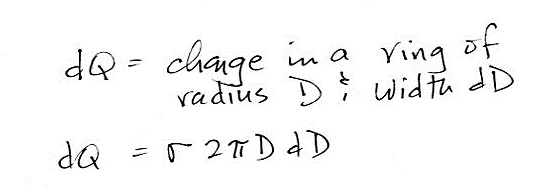 dQ = change in a ring of
radius D & width dD
dQ = σ 2π D dD